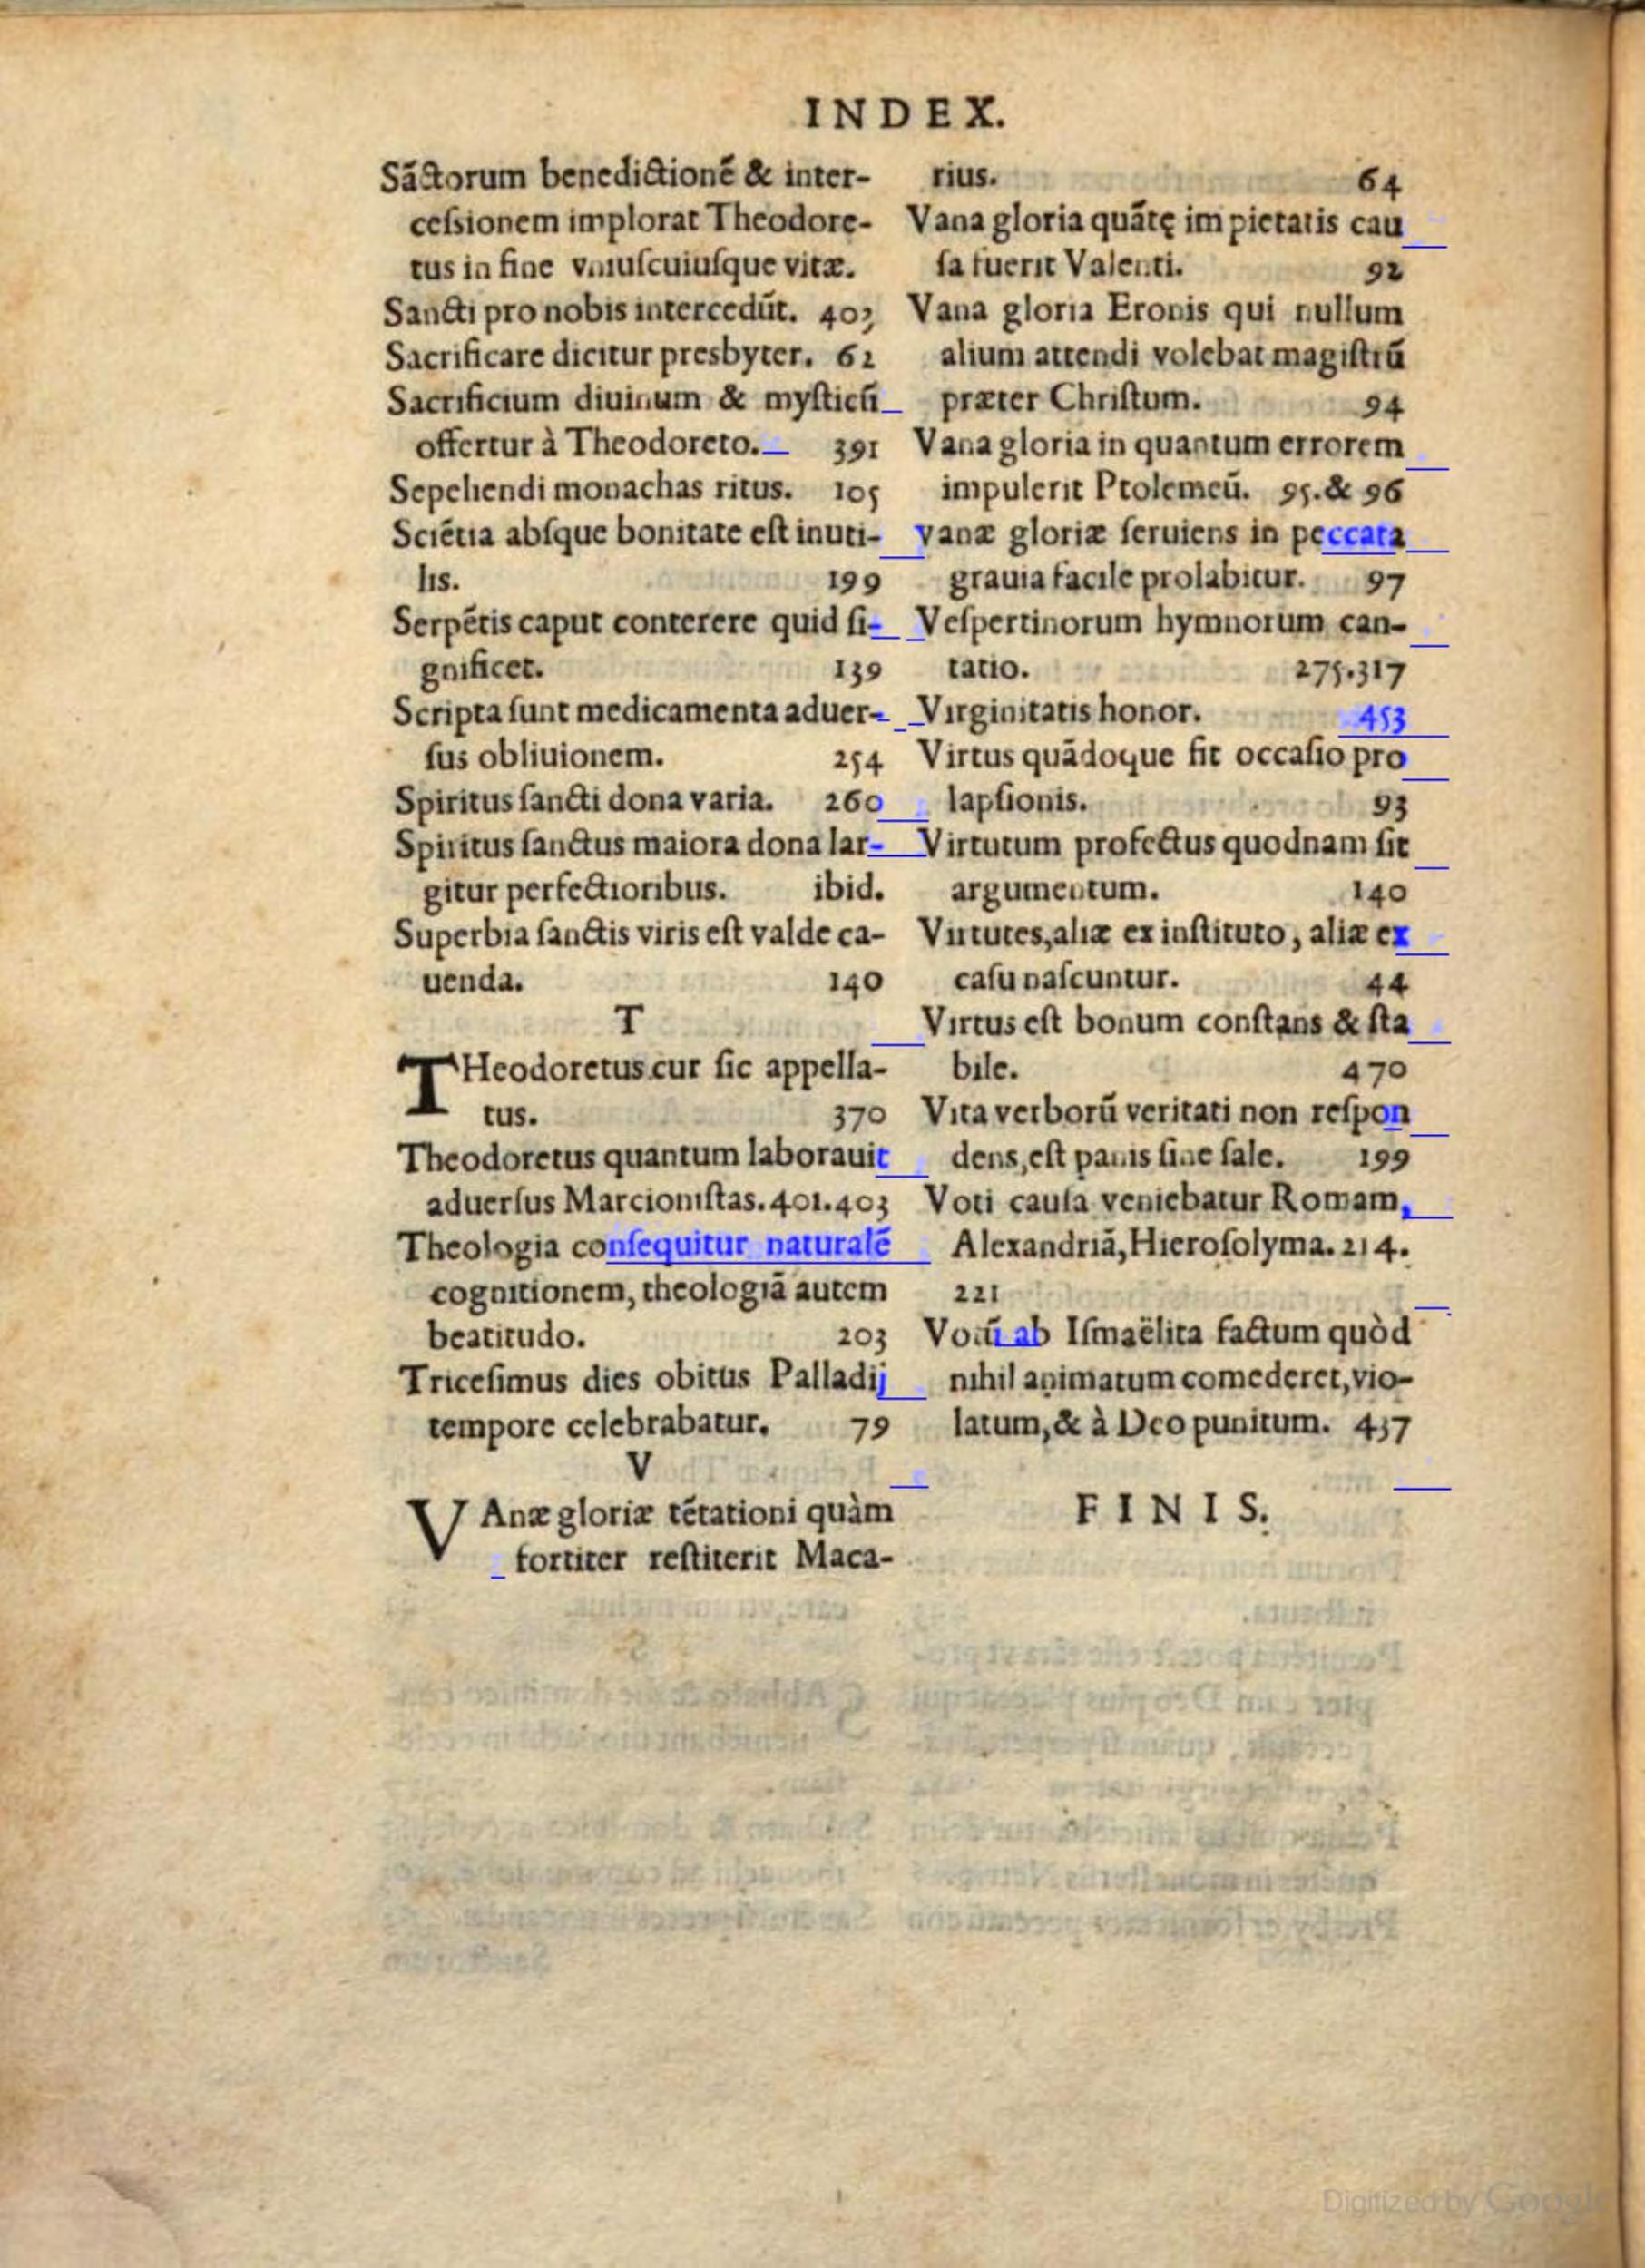 INDEX.
Sãctorum benedictionē & inter-
cessionem implorat Theodore-
tus in fine vniuſcuiuſque vitæ.
Sancti pro nobis intercedūt. 403
Sacrificare dicitur presbyter. 62
Sacrificium diuinum & myſticū
offertur à Theodoreto. 391
Sepeliendi monachas ritus. 105
Sciētia abſque bonitate eſt inuti-
lis. 199
Serpētis caput conterere quid ſi-
gnificet. 139
Scripta ſunt medicamenta aduer-
ſus obliuionem. 254
Spiritus ſancti dona varia. 260
Spiritus ſanctus maiora dona lar-
gitur perfectioribus. ibid.
Superbia ſanctis viris eſt valde ca-
uenda. 140
T
THeodoretus cur ſic appella-
tus. 370
Theodoretus quantum laborauit
aduerſus Marcioniſtas. 401.403
Theologia conſequitur naturalē
cognitionem, theologiā autem
beatitudo. 203
Triceſimus dies obitus Palladij
tempore celebrabatur. 79
V
VAnæ gloriæ tētationi quàm
fortiter reſtiterit Maca-
rius. 64
Vana gloria quātę impietatis cau
ſa fuerit Valenti. 92
Vana gloria Eronis qui nullum
alium attendi volebat magiſtrū
præter Chriſtum. 94
Vana gloria in quantum errorem
impulerit Ptolemeū. 95.& 96
vanæ gloriæ ſeruiens in peccata
grauia facile prolabitur. 97
Veſpertinorum hymnorum can-
tatio. 275.317
Virginitatis honor. 453
Virtus quādoque fit occaſio pro
lapſionis. 93
Virtutum profectus quodnam ſit
argumentum. 140
Virtutes, aliæ ex inſtituto, aliæ ex
caſu naſcuntur. 44
Virtus eſt bonum conſtans & ſta
bile. 470
Vita verborū veritati non reſpon
dens, eſt panis ſine ſale. 199
Voti cauſa veniebatur Romam,
Alexandriā, Hieroſolyma. 214.
221
Votū ab Iſmaëlita factum quòd
nihil animatum comederet, vio-
latum, & à Deo punitum. 437
FINIS.
Digitized by Google